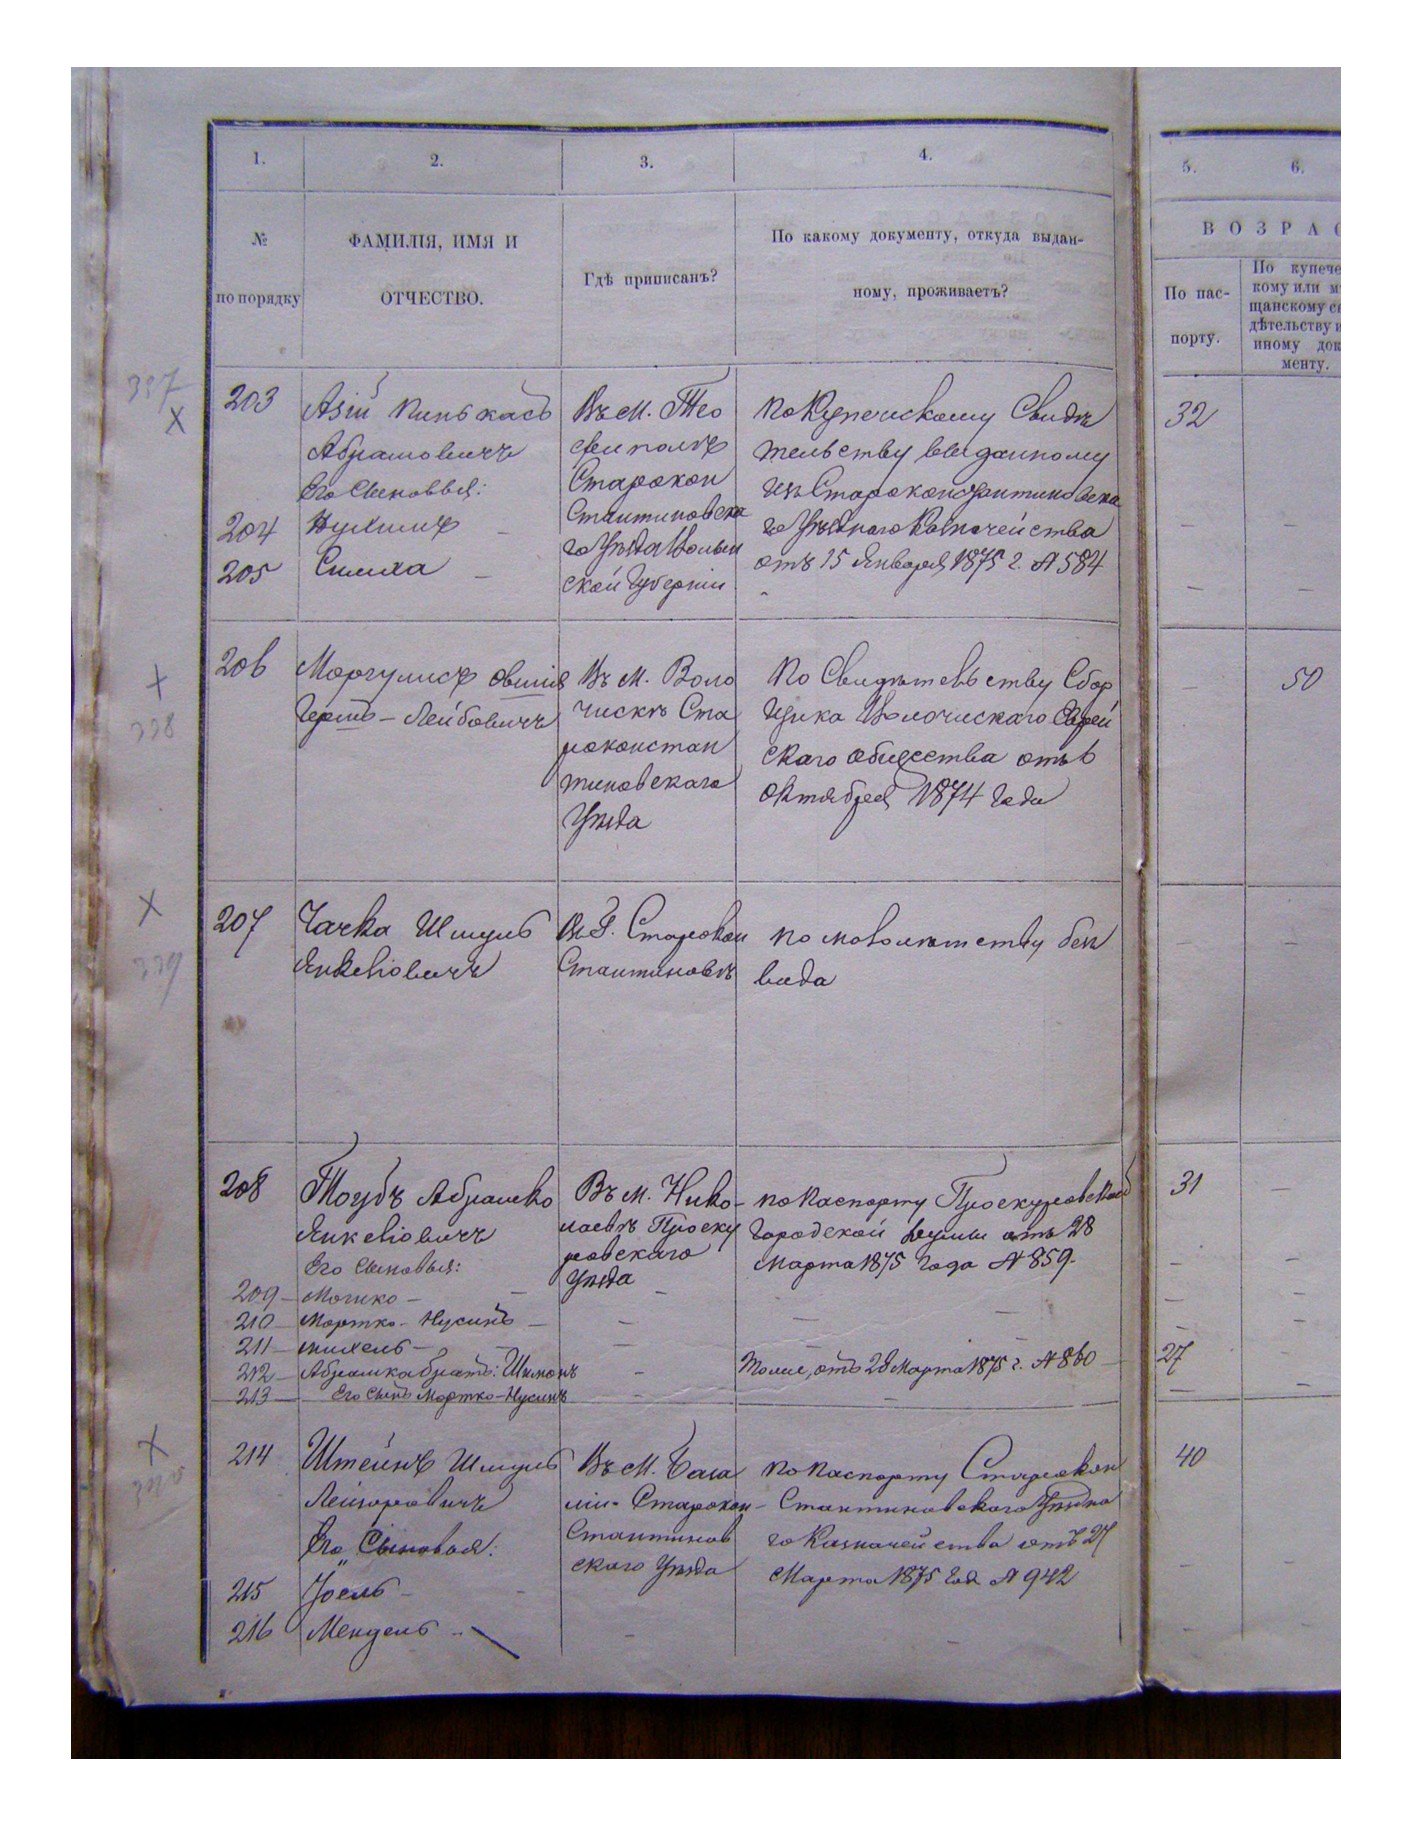 1.
2.
3.
4.
5.
6.
№
по порядку
ФАМИЛІЯ, ИМЯ И
ОТЧЕСТВО.
Гдѣ приписанъ?
По какому документу, откуда выдан-
ному, проживаетъ?
ВОЗРАС
По пас-
порту.
По купече
кому или м
щанскому с
дѣтельству и
иному док
менту.
337
203
Пинькасъ
Абрамовичъ
Его сыновья:
204
205
Симха
Въ м. Тео
фиполѣ
Старокон
стантиновска
го Уѣзда Волын
ской Губерніи
по Купеческому Свидѣ
тельству выданному
изъ Староконстантиновска
го Уѣзднаго Казначейства
отъ 15 Января 1875 г. № 584
32
338
206
Моргулисъ Овшія
Гершъ-Лейбовичъ
Въ м. Воло
чискѣ Ста
роконстан
тиновскаго
Уѣзда
по Свидѣтельству Сбор
щика Волочискаго Еврей
скаго общества отъ 6
Октября 1874 года
50
339
207
Чачка Шмуль
Янкеліовичъ
Въ Г. Старокон
стантиновѣ
по малолѣтству безъ
вида
208
Таубъ Абрамко
Янкеліовичъ
Его сыновья:
Въ м. Нико-
лаевѣ Проску
ровскаго
Уѣзда
по паспорту Проскуровской
Городской думы отъ 28
Марта 1875 года № 859.
31
209 Мошко
210 Мортко-Нусинъ
211 Михель
212 Абрамка братъ: Шимонъ
тоже, отъ 28 Марта 1875 г. № 860
27
213 Его сынъ Мортко-Нусинъ
214
Штейнъ Шмуль
Лейзоровичъ
Его Сыновья:
215 Іоель
216 Мендель
Въ м. База
ліи Старокон-
стантинов
скаго Уѣзда
по паспорту Старокон
стантиновскаго Уѣздна
го Казначейства отъ 27
Марта 1875 года № 942
40